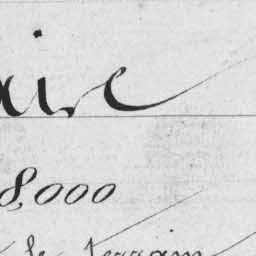 aire
8,000
le terrain